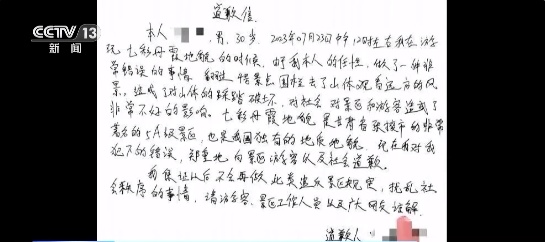 CCTV 13
新闻
道歉信.
本人 ,男,30岁,2023年07月23日中午12时左右我在游
玩七彩丹霞地貌的时候,由于我本人的任性,做了一种非
常错误的事情。翻过情景点围栏去了山体观看远方的风
景,造成了对山体的踩踏破坏,对社会对景区和游客造成了
非常不好的影响。七彩丹霞地貌是甘肃省张掖市的非常
著名的5A级景区,也是我国独有的地质地貌。现在我对我
犯下的错误,郑重地向景区游客以及社会道歉。
我保证以后不会再做此类违反景区规定,扰乱社
会秩序的事情,请游客、景区工作人员以及广大网友谅解.
道歉人: